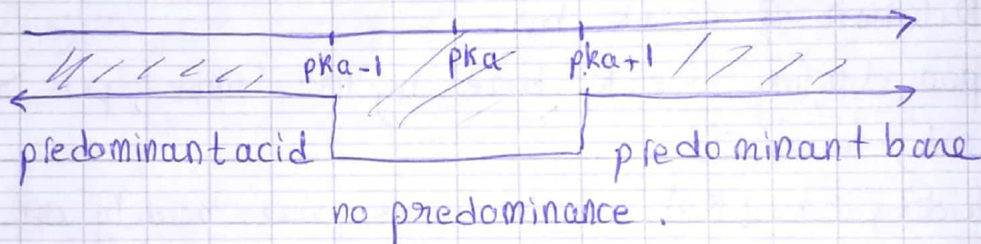 pka-1 pka pka+1
predominant acid predominant base
no predominance.